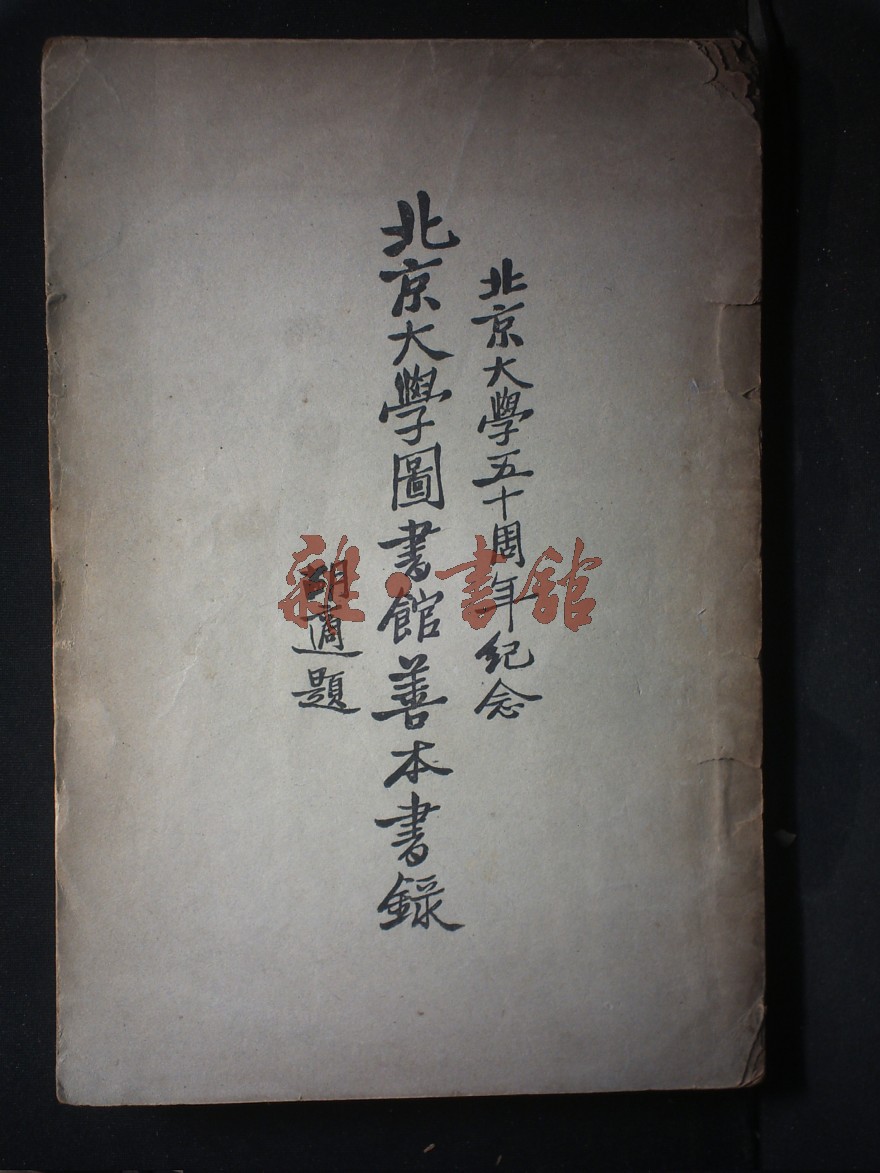 北京大學五十周年紀念
北京大學圖書館善本書錄
胡適題
雜·書館